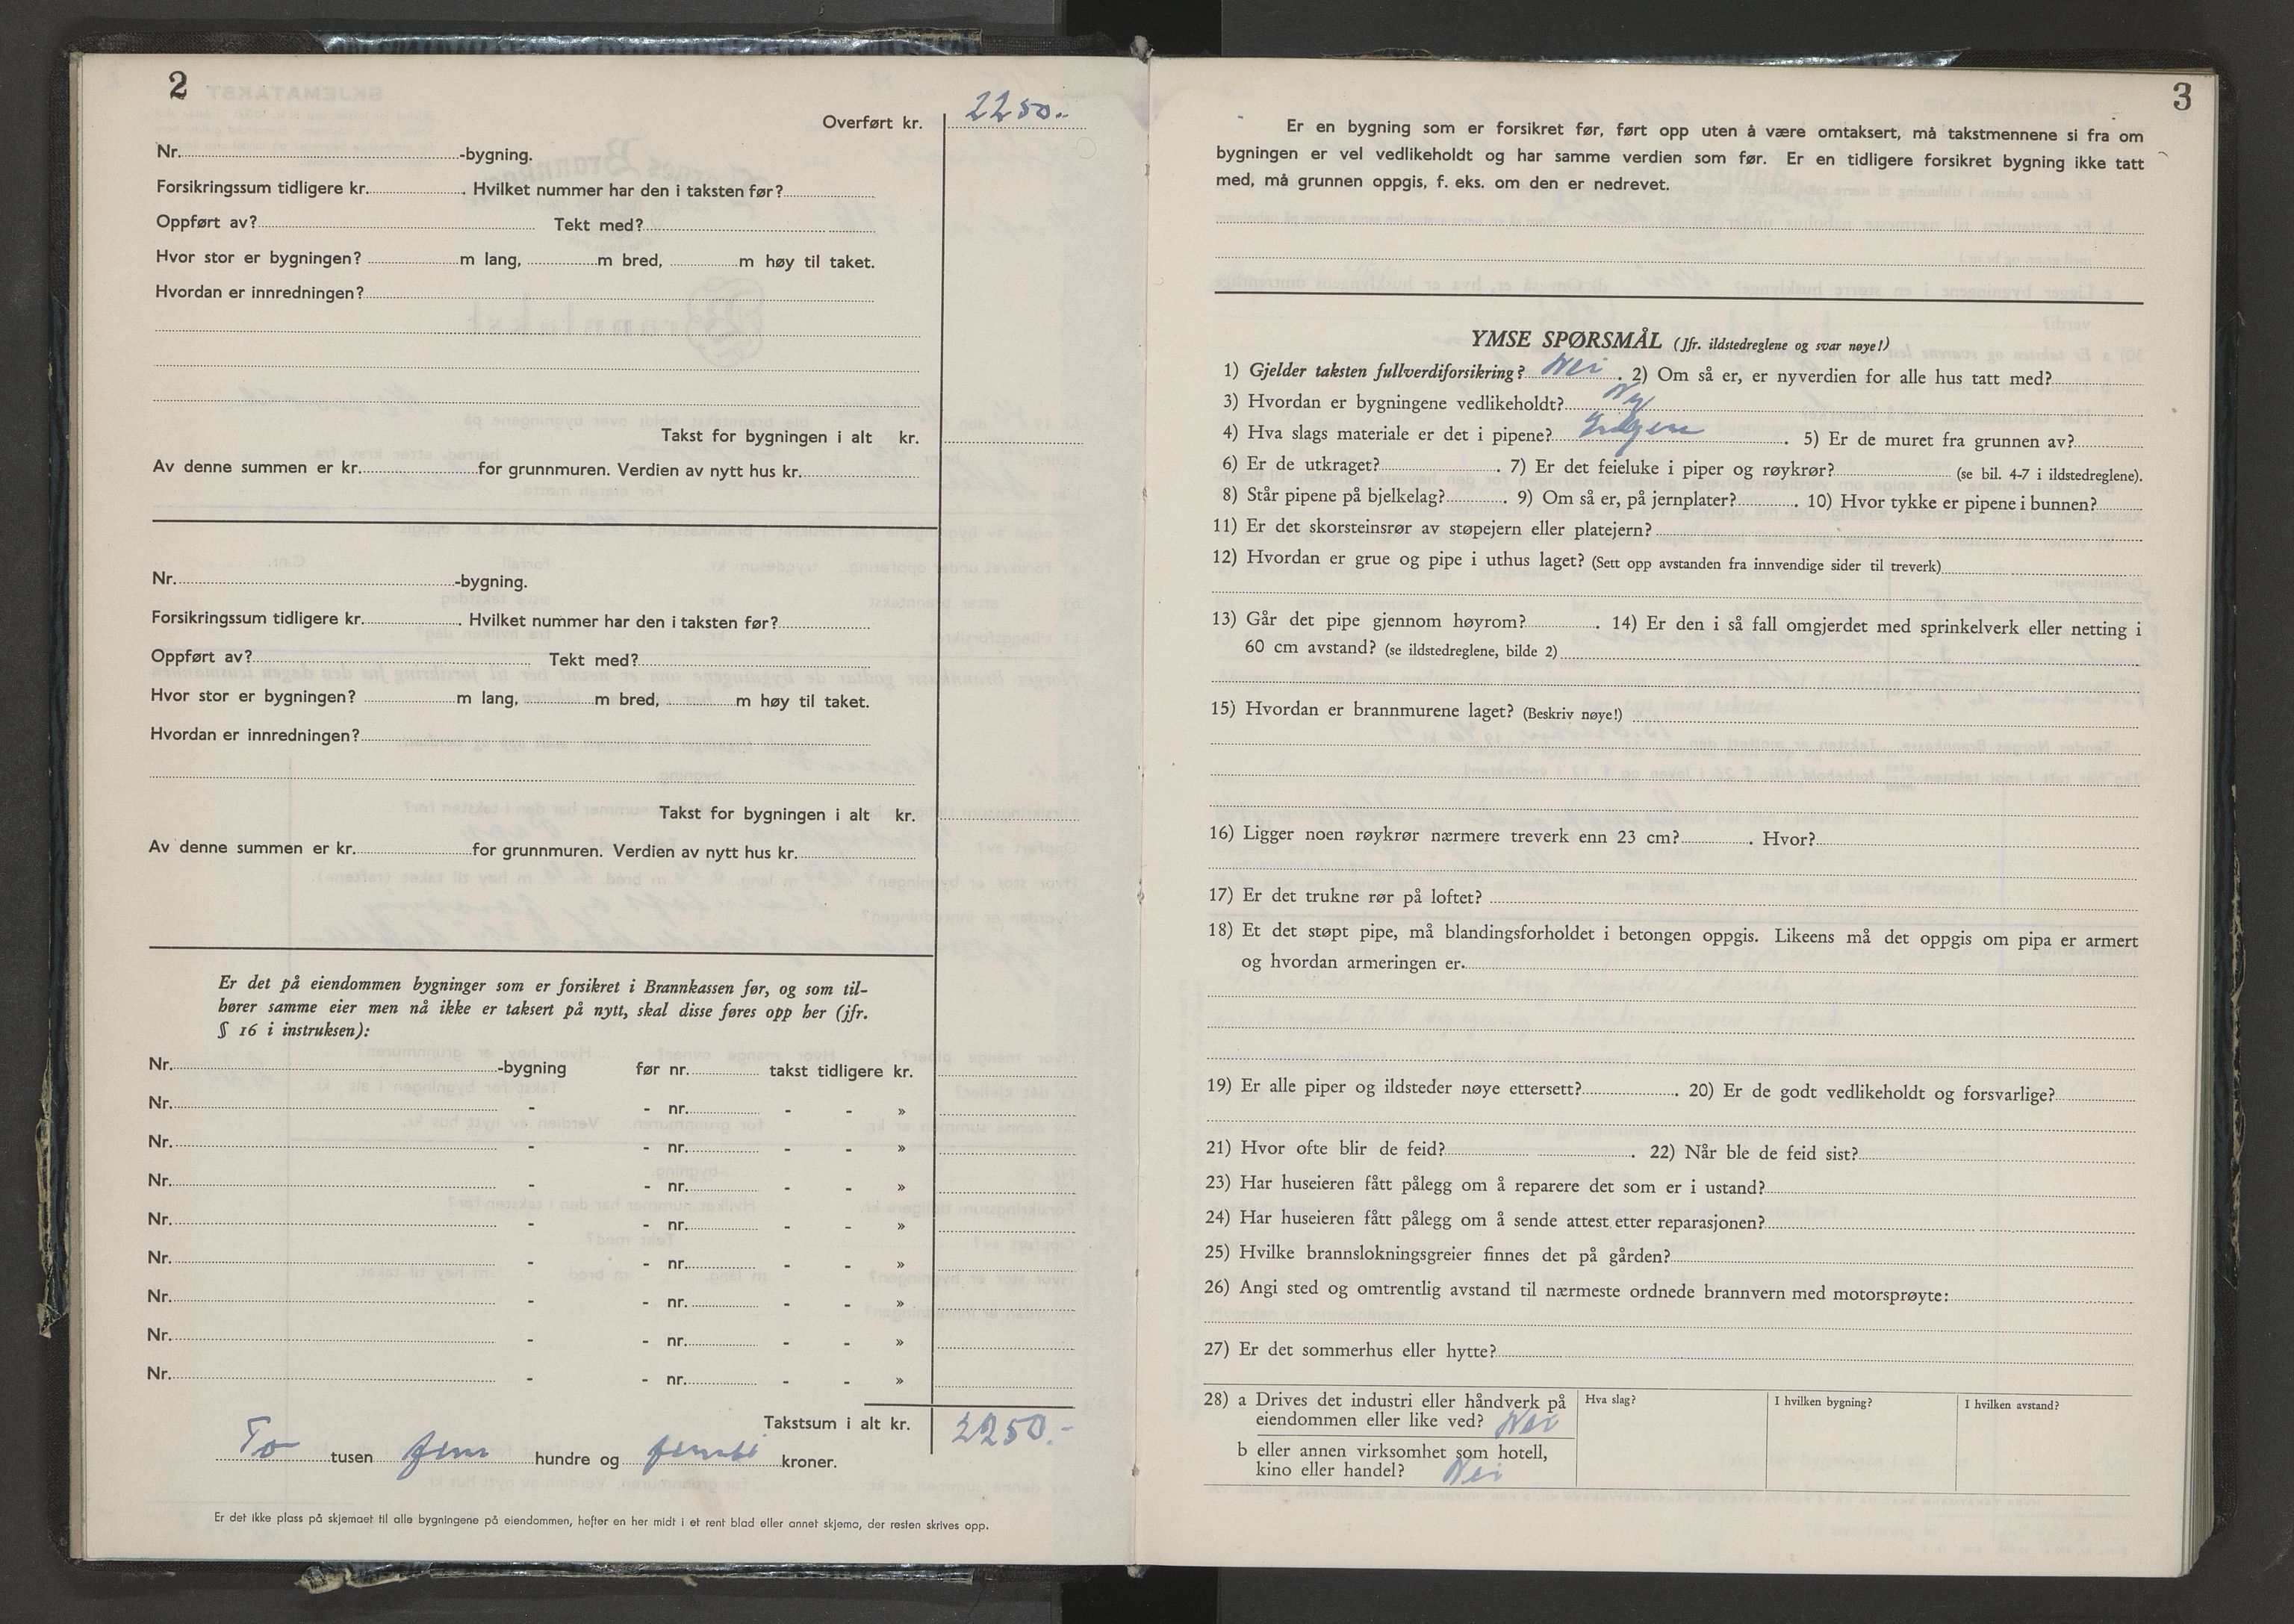 2
Overført kr. 2250.-
Nr. -bygning.
Forsikringssum tidligere kr. . Hvilket nummer har den i taksten før?
Oppført av? Tekt med?
Hvor stor er bygningen? m lang, m bred, m høy til taket.
Hvordan er innredningen?
Takst for bygningen i alt kr.
Av denne summen er kr. for grunnmuren. Verdien av nytt hus kr.
Nr. -bygning.
Forsikringssum tidligere kr. . Hvilket nummer har den i taksten før?
Oppført av? Tekt med?
Hvor stor er bygningen? m lang, m bred, m høy til taket.
Hvordan er innredningen?
Takst for bygningen i alt kr.
Av denne summen er kr. for grunnmuren. Verdien av nytt hus kr.
Er det på eiendommen bygninger som er forsikret i Brannkassen før, og som til-
hører samme eier men nå ikke er taksert på nytt, skal disse føres opp her (jfr.
§ 16 i instruksen):
Nr. -bygning før nr. takst tidligere kr.
Nr. - - nr. - - »
Nr. - - nr. - - »
Nr. - - nr. - - »
Nr. - - nr. - - »
Nr. - - nr. - - »
Nr. - - nr. - - »
Nr. - - nr. - - »
Nr. - - nr. - - »
Takstsum i alt kr. 2250.-
To tusen fem hundre og femti kroner.
Er det ikke plass på skjemaet til alle bygningene på eiendommen, hefter en her midt i et rent blad eller annet skjema, der resten skrives opp.
3
Er en bygning som er forsikret før, ført opp uten å være omtaksert, må takstmennene si fra om
bygningen er vel vedlikeholdt og har samme verdien som før. Er en tidligere forsikret bygning ikke tatt
med, må grunnen oppgis, f. eks. om den er nedrevet.
YMSE SPØRSMÅL (Jfr. ildstedreglene og svar nøye!)
1) Gjelder taksten fullverdiforsikring? Nei . 2) Om så er, er nyverdien for alle hus tatt med?
3) Hvordan er bygningene vedlikeholdt? Ny
4) Hva slags materiale er det i pipene? Ingen . 5) Er de muret fra grunnen av?
6) Er de utkraget? . 7) Er det feieluke i piper og røykrør? (se bil. 4-7 i ildstedreglene).
8) Står pipene på bjelkelag? . 9) Om så er, på jernplater? . 10) Hvor tykke er pipene i bunnen?
11) Er det skorsteinsrør av støpejern eller platejern?
12) Hvordan er grue og pipe i uthus laget? (Sett opp avstanden fra innvendige sider til treverk)
13) Går det pipe gjennom høyrom? . 14) Er den i så fall omgjerdet med sprinkelverk eller netting i
60 cm avstand? (se ildstedreglene, bilde 2)
15) Hvordan er brannmurene laget? (Beskriv nøye!)
16) Ligger noen røykrør nærmere treverk enn 23 cm? . Hvor?
17) Er det trukne rør på loftet?
18) Et det støpt pipe, må blandingsforholdet i betongen oppgis. Likeens må det oppgis om pipa er armert
og hvordan armeringen er.
19) Er alle piper og ildsteder nøye ettersett? . 20) Er de godt vedlikeholdt og forsvarlige?
21) Hvor ofte blir de feid? . 22) Når ble de feid sist?
23) Har huseieren fått pålegg om å reparere det som er i ustand?
24) Har huseieren fått pålegg om å sende attest etter reparasjonen?
25) Hvilke brannslokningsgreier finnes det på gården?
26) Angi sted og omtrentlig avstand til nærmeste ordnede brannvern med motorsprøyte:
27) Er det sommerhus eller hytte?
28) a Drives det industri eller håndverk på
eiendommen eller like ved? Nei
b eller annen virksomhet som hotell,
kino eller handel? Nei
Hva slag?
I hvilken bygning?
I hvilken avstand?